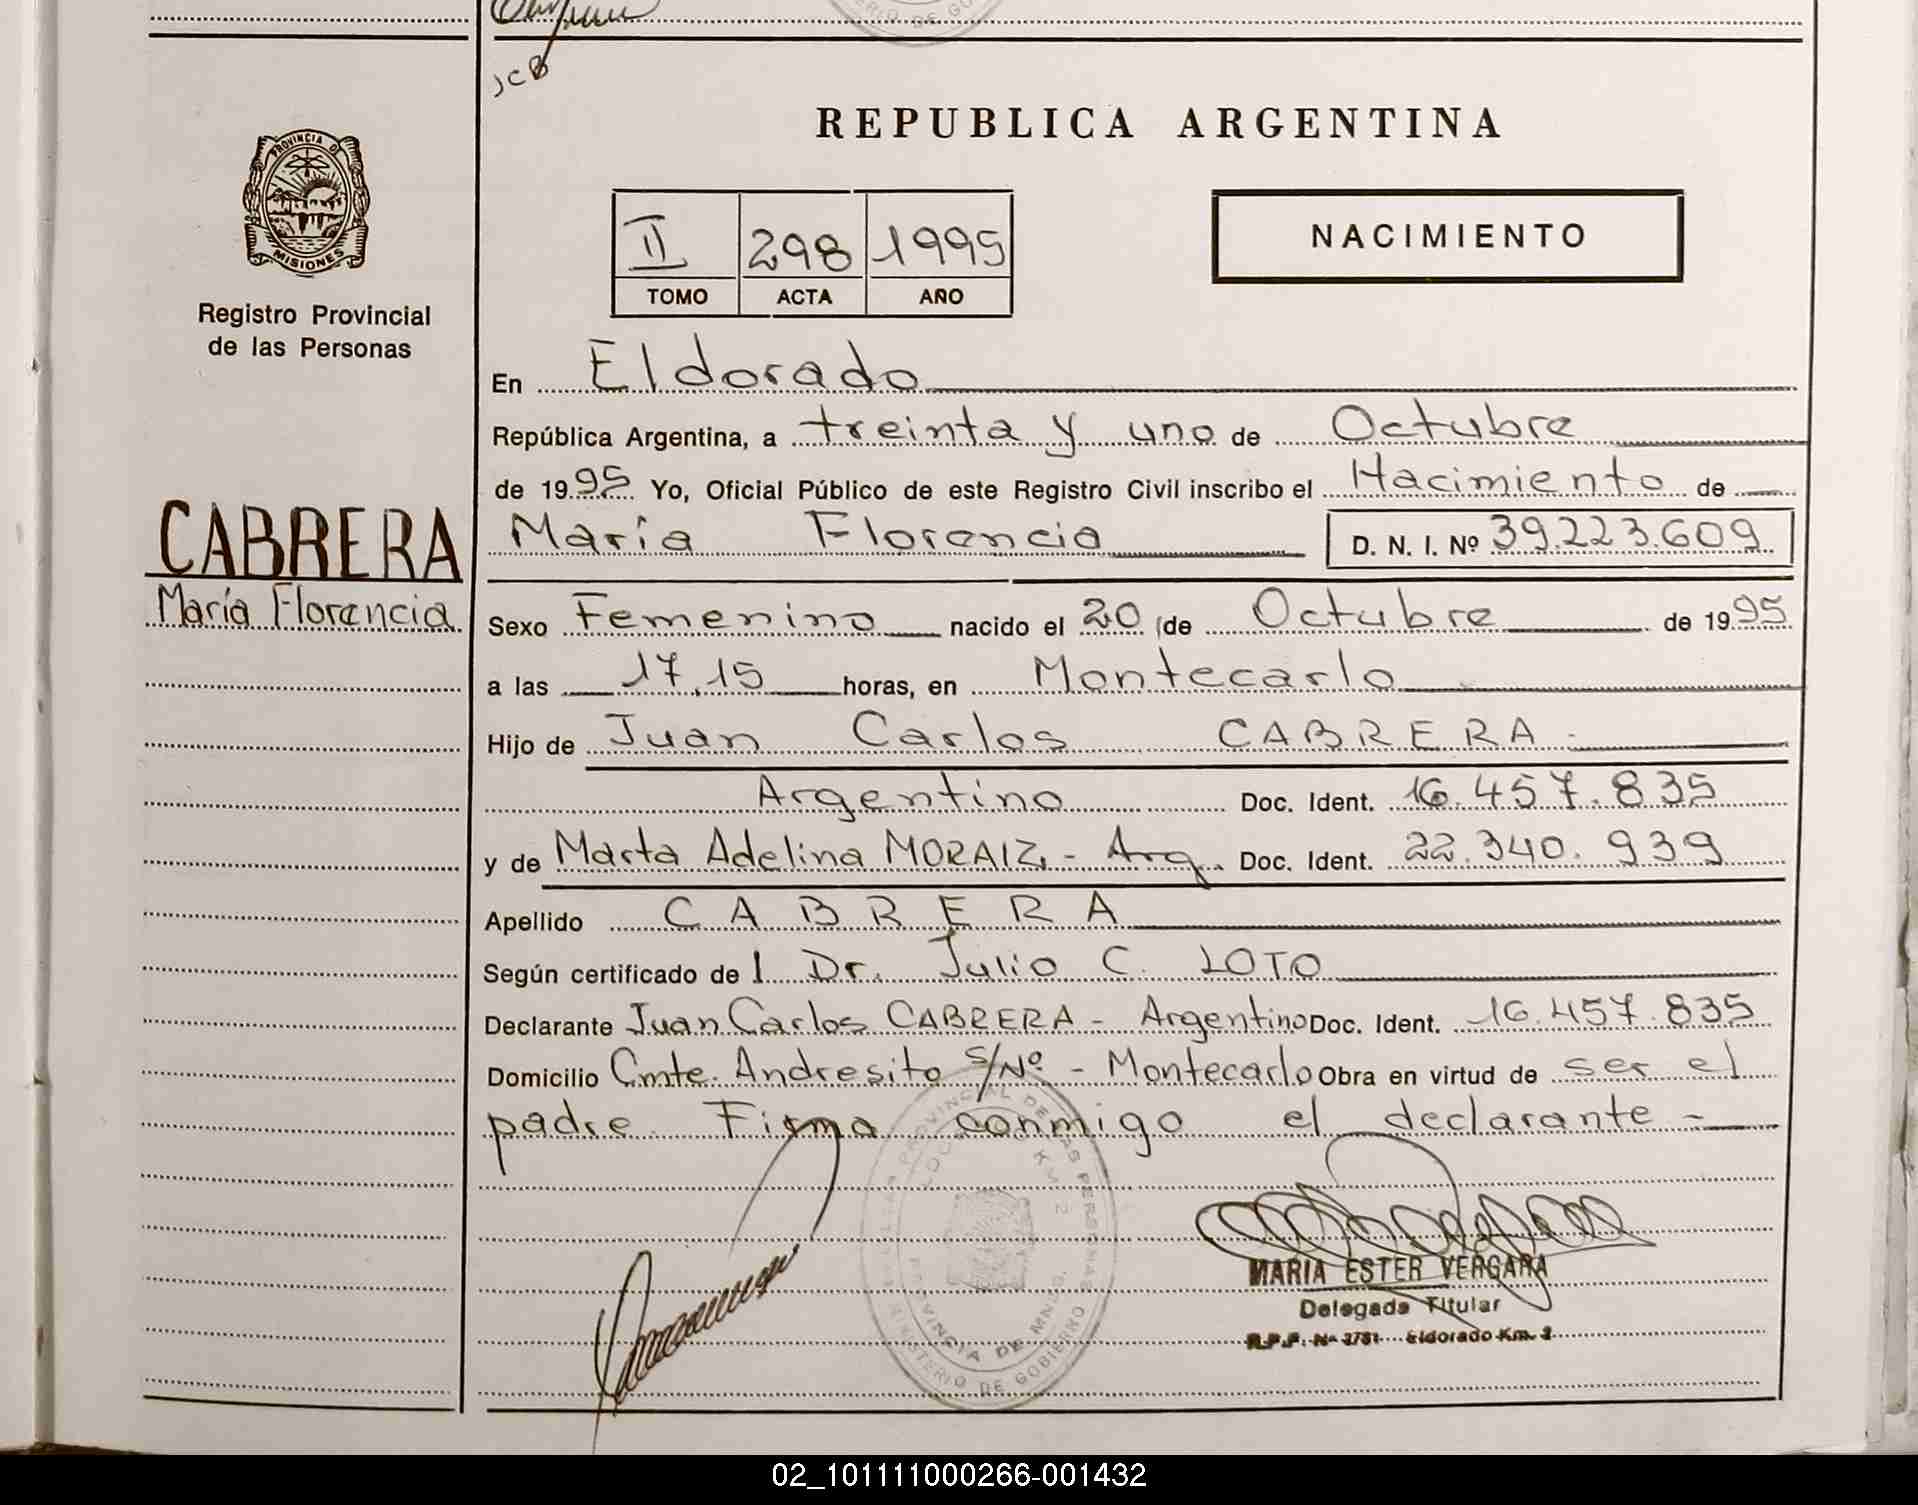 JCB
PROVINCIA D
MISIONES
Registro Provincial
de las Personas
CABRERA
María Florencia
REPUBLICA ARGENTINA
II 298 1995
TOMO ACTA AÑO
NACIMIENTO
En Eldorado
República Argentina, a treinta y uno de Octubre
de 1995 Yo, Oficial Público de este Registro Civil inscribo el Nacimiento de
María Florencia D. N. I. Nº 39.223.609
Sexo Femenino nacido el 20 de Octubre de 1995
a las 17,15 horas, en Montecarlo
Hijo de Juan Carlos CABRERA -
Argentino Doc. Ident. 16.457.835
y de Marta Adelina MORAIZ, - Arg. Doc. Ident. 22.340.939
Apellido CABRERA
Según certificado de l Dr. Julio C. LOTO
Declarante Juan Carlos CABRERA - Argentino Doc. Ident. 16.457.835
Domicilio Cmte. Andresito s/Nº - Montecarlo Obra en virtud de ser el
padre Firma conmigo el declarante -
PROVINCIAL DE LAS PERSONAS
KM 2
PROVINCIA DE MNES.
MINISTERIO DE GOBIERNO
MARIA ESTER VERGARA
Delegada Titular
R.P.P. Nº 2781 Eldorado Km. 2
02_101111000266-001432